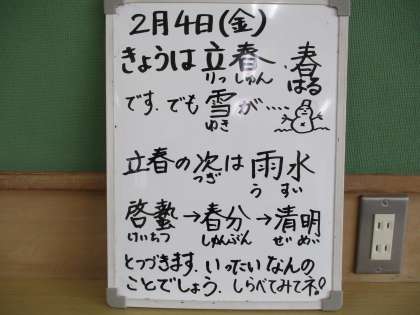 2月4日(金)
きょうは立春.春
りっしゅん はる
です.でも雪が....
ゆき
立春の次は雨水
つぎ うすい
啓蟄→春分→清明
けいちつ しゅんぶん せいめい
とつづきます.いったいなんの
ことでしょう.しらべてみてネ!